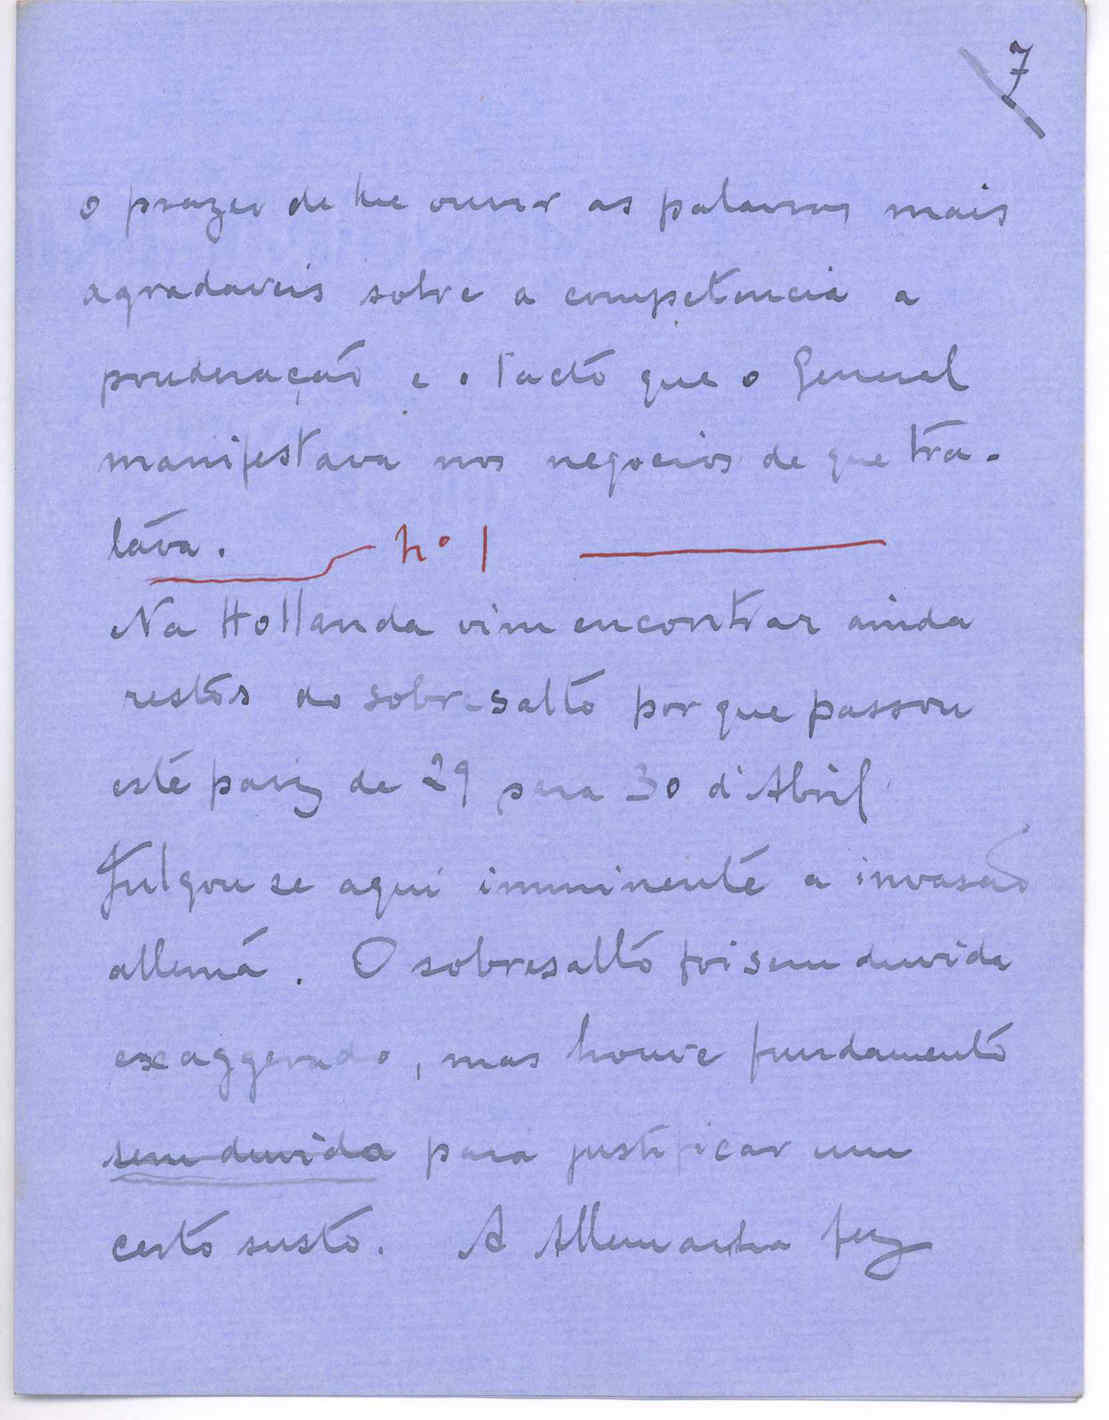 7
o prazer de lhe ouvir as palavras mais
agradaveis sobre a competencia a
ponderação e o tacto que o General
manifestava nos negocios de que tra-
tava. nº 1
Na Hollanda vim encontrar ainda
restos do sobresalto por que passou
este paiz de 29 para 30 d'Abril
Julgou se aqui imminente a invasão
allemã. O sobresalto foi sem duvida
exaggerado, mas houve fundamento
sem duvida para justificar um
certo susto. A Allemanha fez